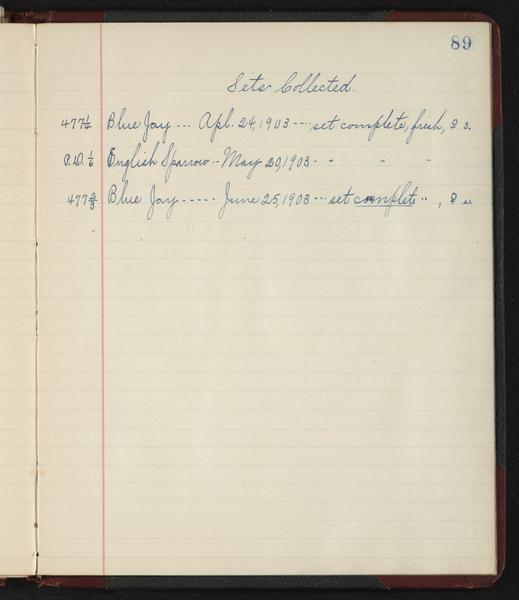 89
Sets Collected.
477 1/4 Blue Jay --- Apl. 24, 1903 --- set complete, fresh, ♀ s.
P.D. 1/6 English Sparrow -- May 20, 1903 - " " "
477 2/3 Blue Jay ----- June 25, 1903 --- set complete ", ♀